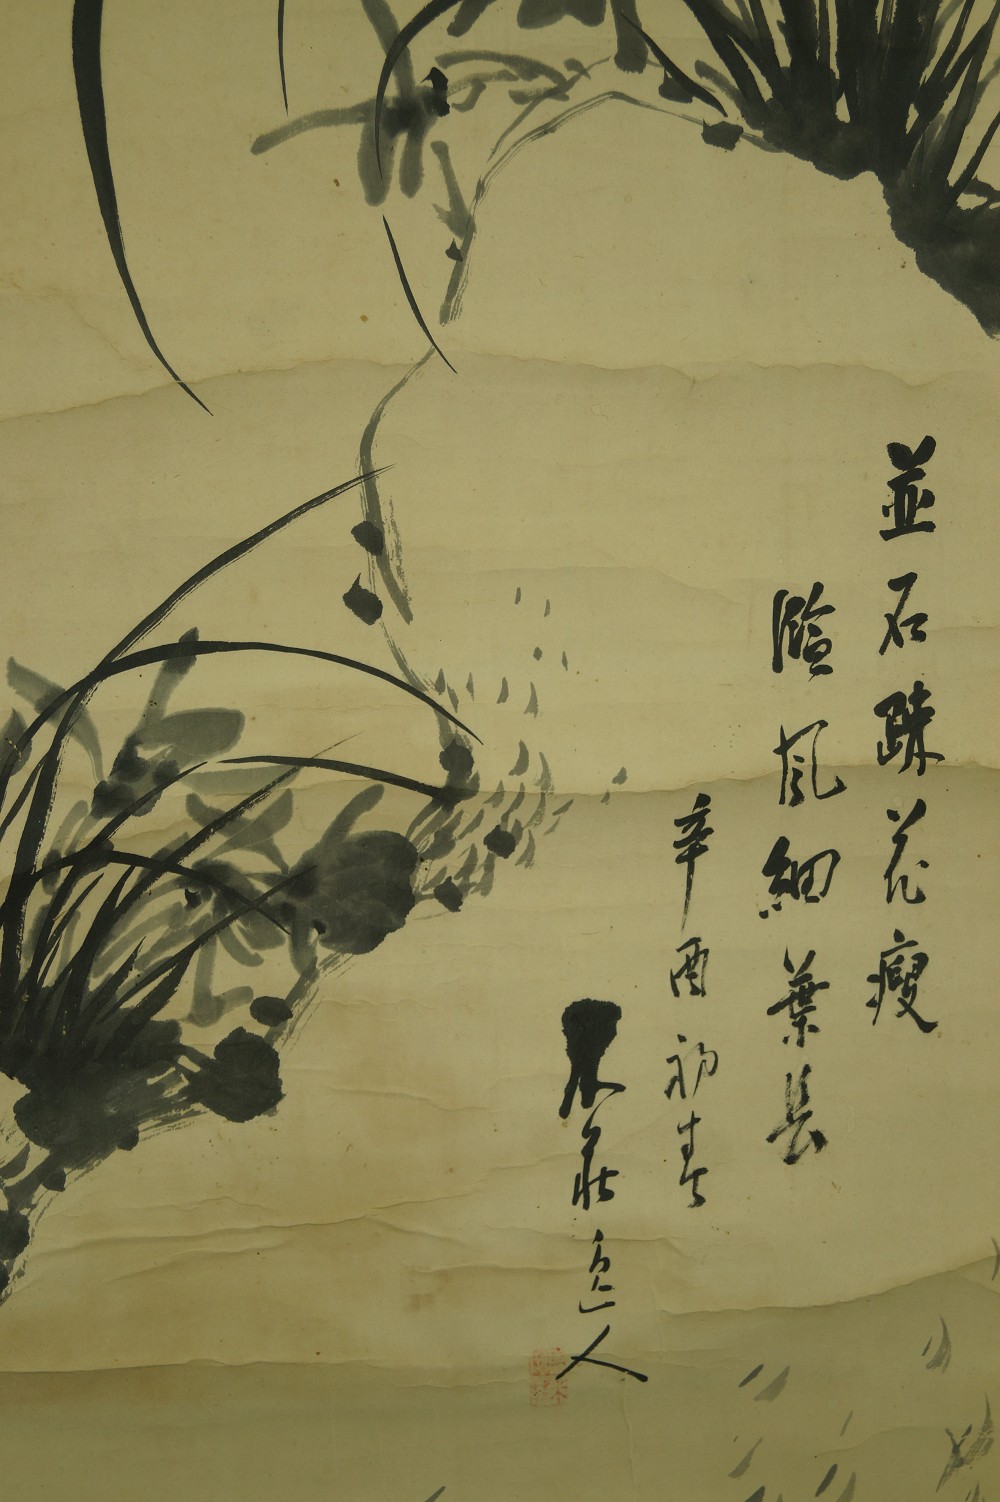 並石疎花瘦
臨風細葉長
辛酉初春
道人